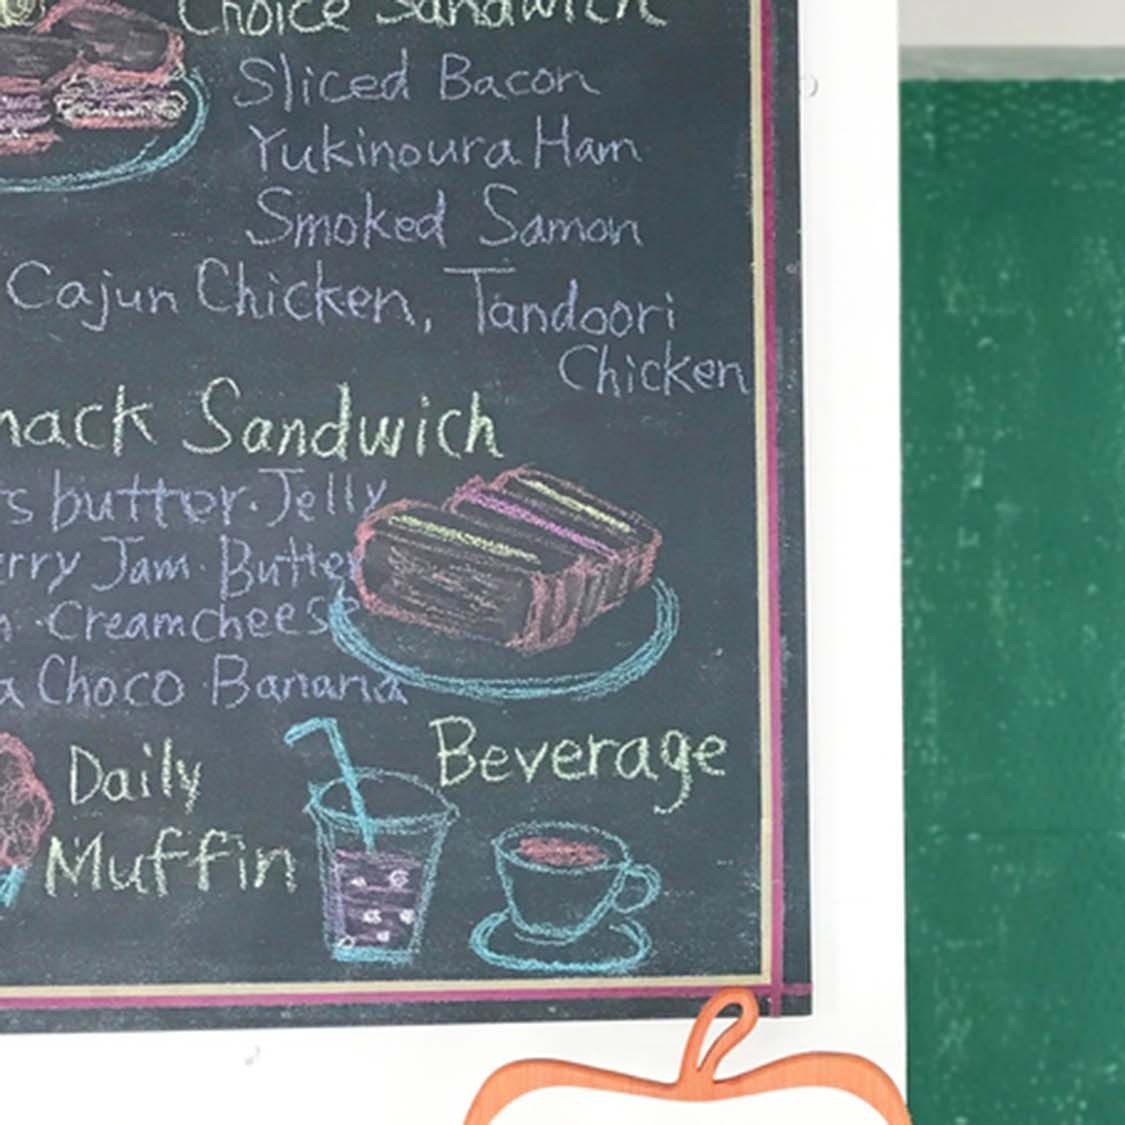 Choice Sandwich
Sliced Bacon
Yukinoura Ham
Smoked Samon
Cajun Chicken, Tandoori
Chicken
nack Sandwich
s butter·Jelly
rry Jam·Butter
·Creamcheese
a Choco·Banana
Daily
Muffin
Beverage